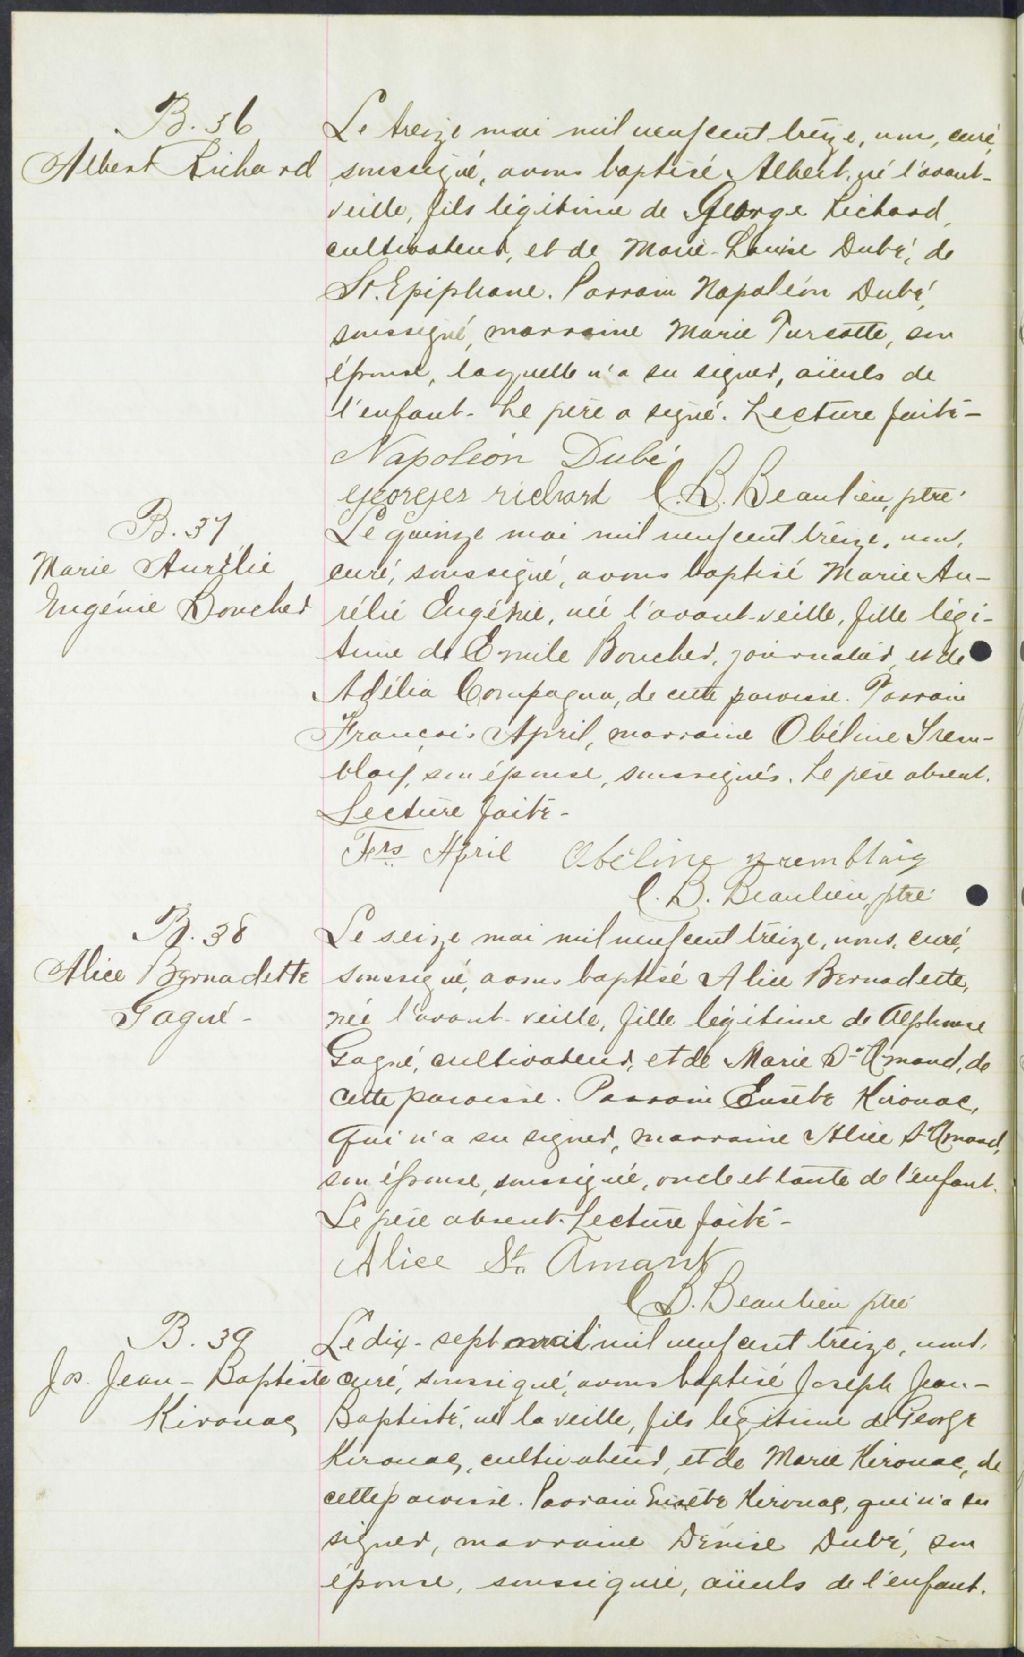 B. 36
Albert Richard
Le treize mai mil neuf cent treize, nous, curé,
soussigné, avons baptisé Albert, né l'avant-
veille, fils légitime de George Richard,
cultivateur, et de Marie-Louise Dubé, de
St. Epiphane. Parrain Napoléon Dubé,
soussigné, marraine Marie Turcotte, son
épouse, laquelle n'a su signer, aïeuls de
l'enfant. Le père a signé. Lecture faite -
Napoléon Dubé
georges richard C. B. Beaulieu, ptre
B. 37
Marie Aurélie
Eugénie Boucher
Le quinze mai mil neuf cent treize, nous,
curé, soussigné, avons baptisé Marie Au-
rélie Eugénie, née l'avant-veille, fille légi-
time de Emile Boucher, journalier, et de
Adélia Compagna, de cette paroisse. Parrain
François April, marraine Obéline Trem-
blay, son épouse, soussignés. Le père absent.
Lecture faite -
Frs April Obéline Tremblay
C. B. Beaulieu, ptre
B. 38
Alice Bernadette
Gagné -
Le seize mai mil neuf cent treize, nous, curé,
soussigné, avons baptisé Alice Bernadette,
née l'avant-veille, fille légitime de Alphonse
Gagné, cultivateur, et de Marie St-Amand, de
cette paroisse. Parrain Eusèbe Kirouac,
qui n'a su signer, marraine Alice St-Amand,
son épouse, soussignée, oncle et tante de l'enfant.
Le père absent. Lecture faite -
Alice St. Amant
C. B. Beaulieu ptre
B. 39
Jos. Jean-Baptiste
Kirouac
Le dix-sept mil neuf cent treize, nous,
curé, soussigné, avons baptisé Joseph Jean-
Baptiste, né la veille, fils légitime de George
Kirouac, cultivateur, et de Marie Kirouac, de
cette paroisse. Parrain Eusèbe Kirouac, qui n'a su
signer, marraine Dénise Dubé, son
épouse, soussignée, aïeuls de l'enfant.